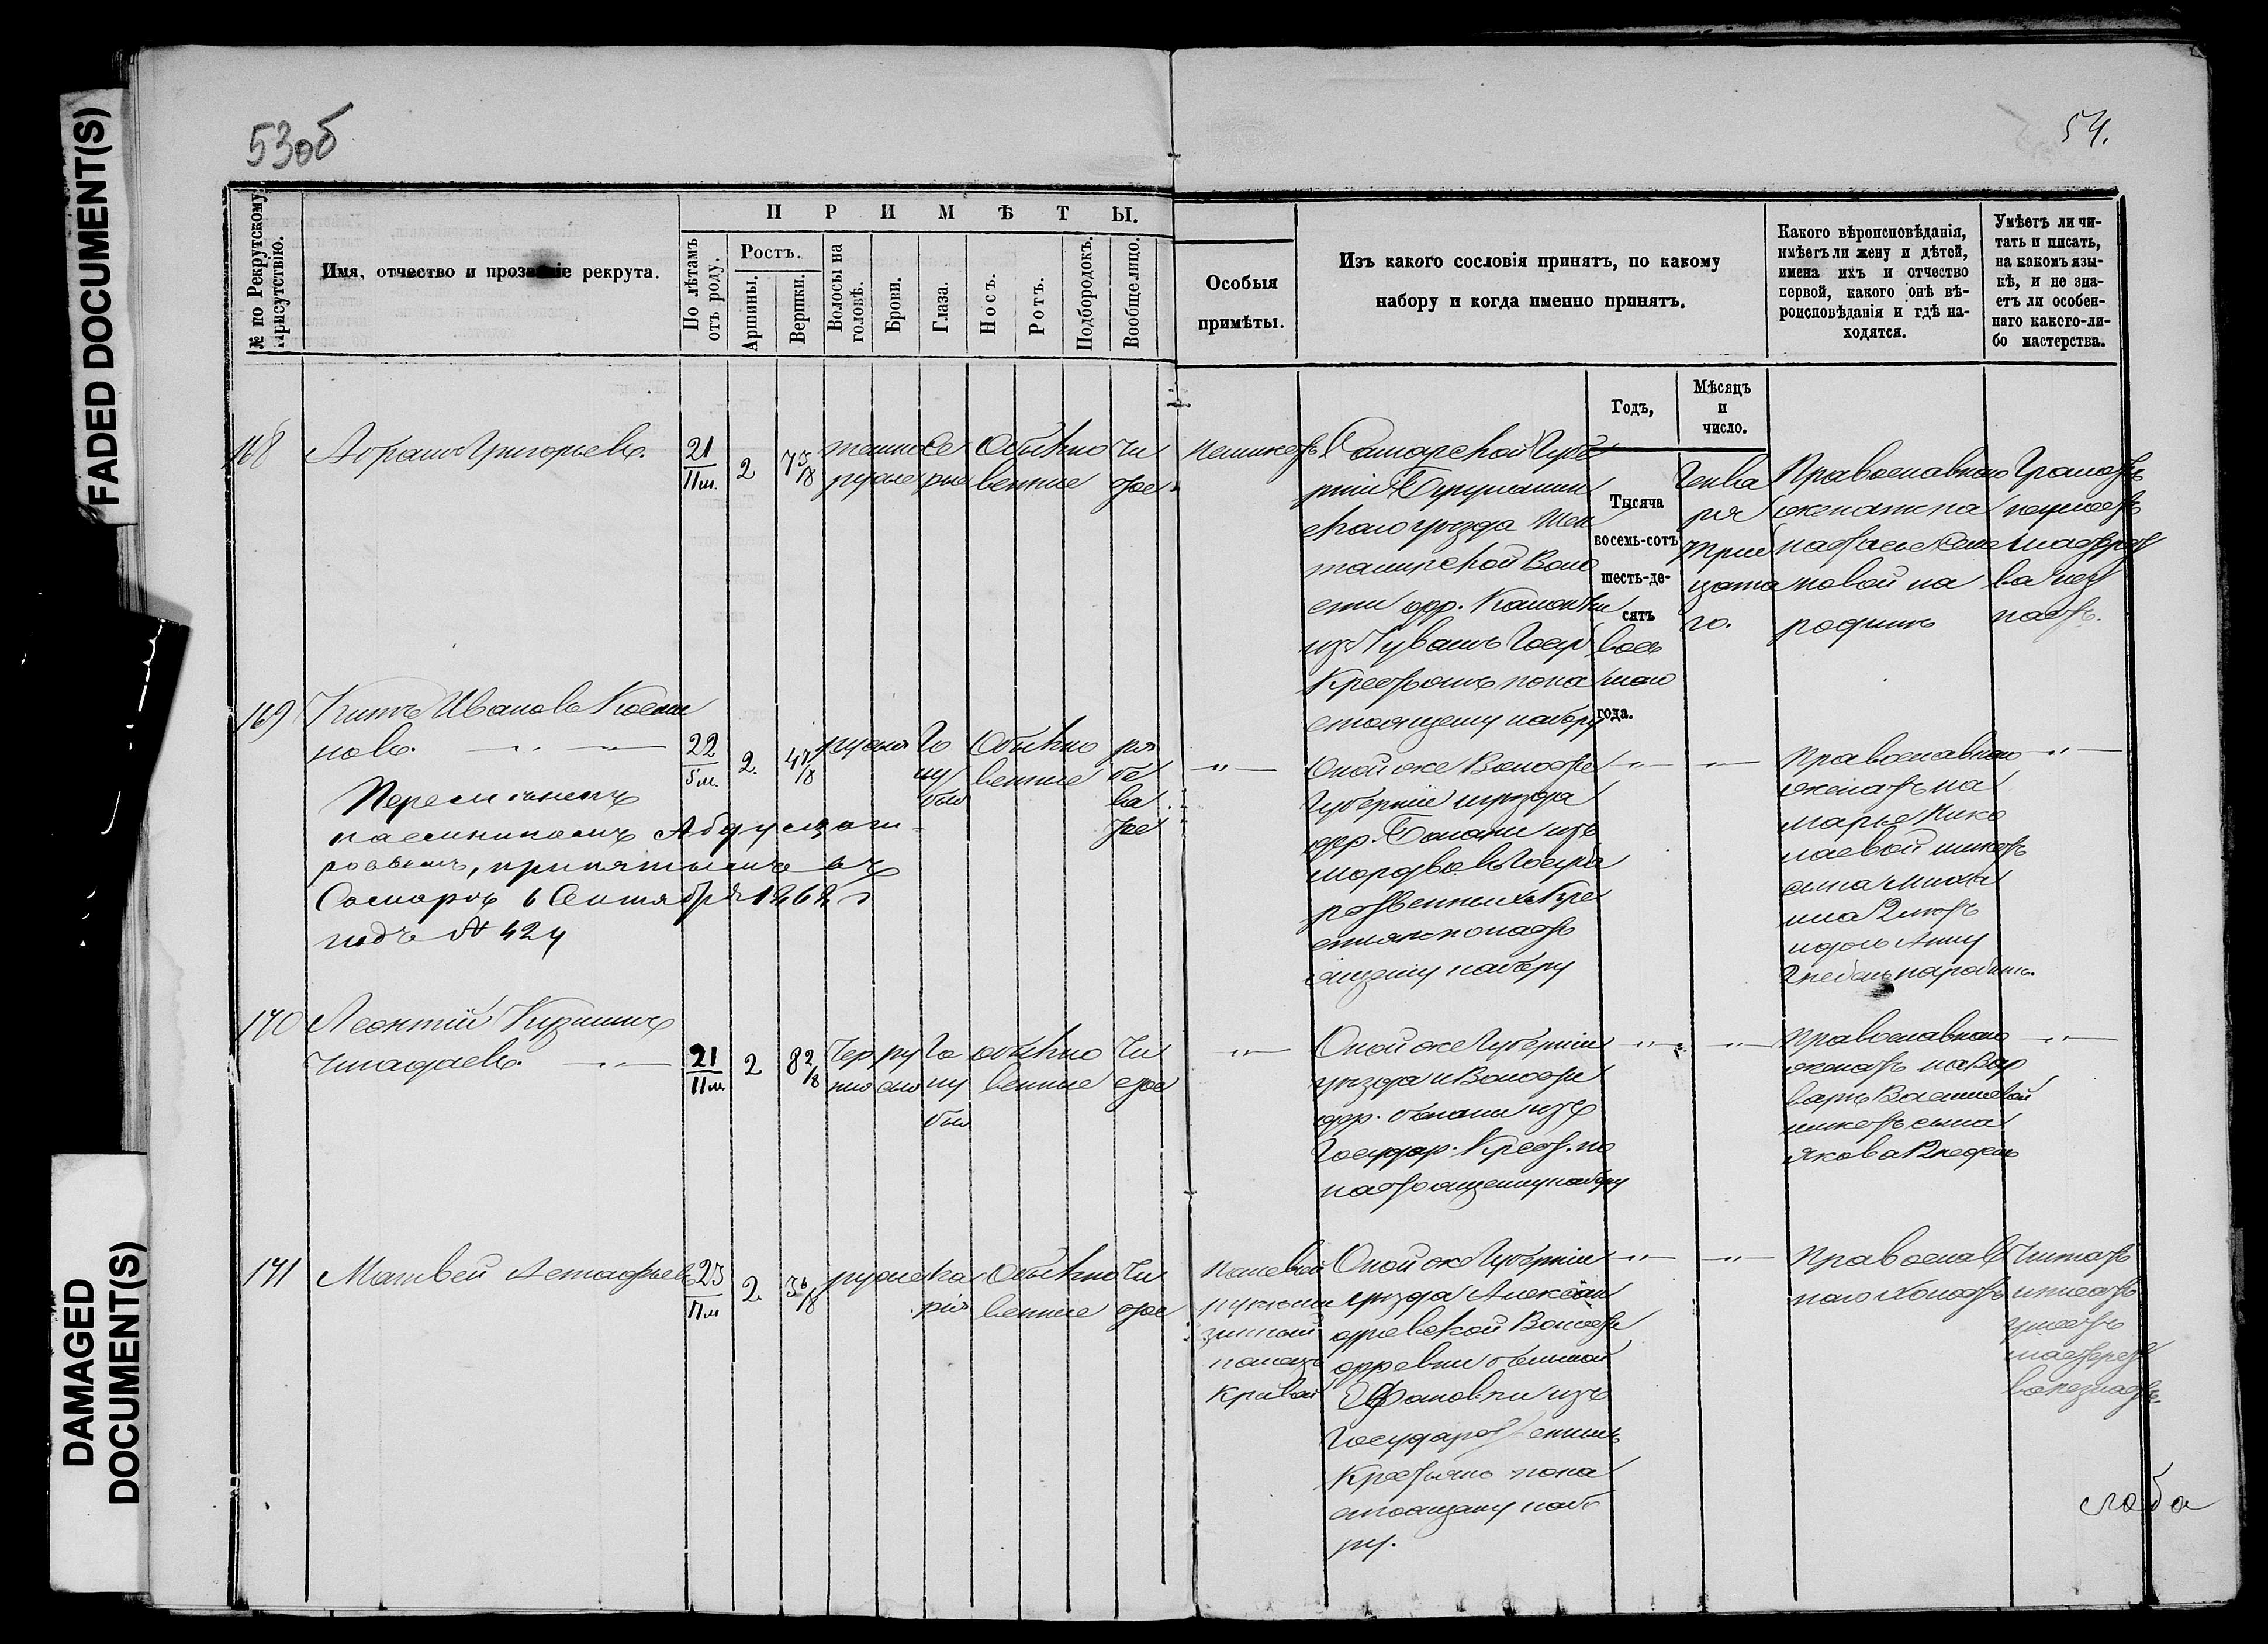 FADED DOCUMENT(S)
DAMAGED
DOCUMENT(S)
53об
54.
№ по Рекрутскому
присутствію.
Имя, отчество и прозваніе рекрута.
ПРИМѢТЫ.
По лѣтамъ
отъ роду.
Ростъ.
Аршины.
Вершки.
Волосы на
головѣ.
Брови.
Глаза.
Носъ.
Ротъ.
Подбородокъ.
Вообще лицо.
Особыя
примѣты.
Изъ какого сословія принятъ, по какому
набору и когда именно принятъ.
Годъ,
Мѣсяцъ
и
число.
Какого вѣроисповѣданія,
имѣетъ ли жену и дѣтей,
имена ихъ и отчество
первой, какого онѣ вѣ-
роисповѣданія и гдѣ на-
ходятся.
Умѣетъ ли чи-
тать и писать,
на какомъ язы-
кѣ, и не зна-
етъ ли особен-
наго какого-ли-
бо мастерства.
168
Абрамъ Григорьевъ.
21
11 м.
2
7 3/8
темно
русые
се
рые
Обыкно
венные
чи
стое
Неимѣетъ
Самарской Губе
рніи Бугульмин
скаго уѣзда
Воло
сти дер.
изъ Чувашъ Госуд
Крестьянъ по на
стоящему набору
Тысяча
восемь-сотъ
шесть-де-
сятъ
вось
маго
года.
Генва
ря
Трид
цата
го.
Православнаго
женатъ на
Настасье Семе
новой на
родинѣ
Грамотѣ
неумѣетъ
мастерст
ва не з
наетъ.
169
Иванов Косми
новъ.
22
5 м.
2.
4 7/8
русые
Го
лу
бые
Обыкно
венные
ря
бо
ва
тое
Оной же Волости
Губерніи и уѣзда
дер.
мордвовъ Госуда
рственныхъ Кре
стьянъ по наст
оящему набору
Православнаго
женатъ на
Марье Нико
лаевой имѣетъ
сына Миха
ила 2 лѣтъ
и дочь Анну
2 недель на родинѣ.
наемникомъ
принятымъ въ
Самарѣ 6 Сентября 1868 г
подъ № 424
170
Леонтій Кузьминъ
Чпадаевъ.
21
11 м.
2
8 2/8
Чер
ные
ру
сые
Го
лу
бые
обыкно
венные
Чи
стое
Оной же Губерніи
уѣзда и Волости
дер. изъ
Государ. Крест. по
настоящему набору
Православнаго
женатъ на Вар
варѣ Васильевой
имѣетъ сына
Якова 2 недель
171
Матвей Астафьевъ
23
11 м
2.
3 6/8
русые
ка
ріе
Обыкно
венные
Чи
стое
На левой
руки
палецъ
кривой
Оной же Губерніи
уѣзда Алексан
дровской Волости
деревни
изъ
Государственныхъ
Крестьянъ по на
стоящему набо
ру.
Православ
наго Холостъ
Читать
писать
умѣетъ
мастерст
ва незнаетъ